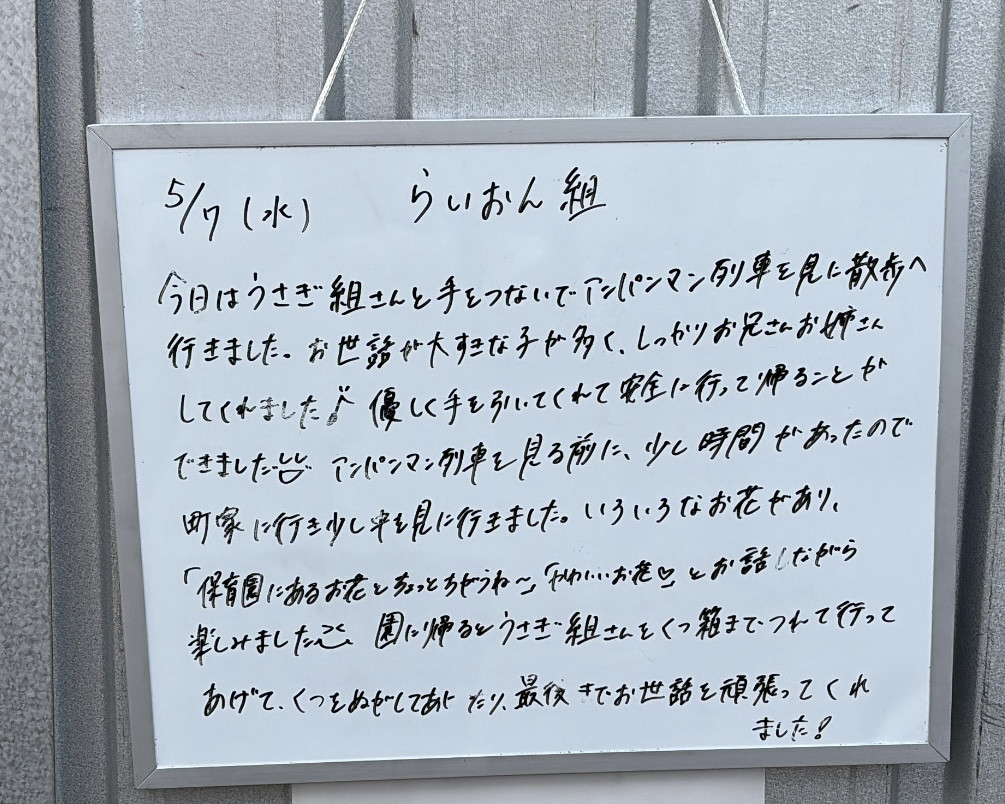 5/7(水) らいおん組
今日はうさぎ組さんと手をつないでアンパンマン列車を見に散歩へ
行きました。お世話が大すきな子が多く、しっかりお兄さんお姉さん
してくれました♪ 優しく手を引いてくれて安全に行って帰ることが
できました アンパンマン列車を見る前に、少し時間があったので
町家に行き少し中を見に行きました。いろいろなお花があり、
「保育園にあるお花とちょっとちがうね〜」「かわいいお花♡」とお話しながら
楽しみました 園に帰るとうさぎ組さんをくつ箱までつれて行って
あげて、くつをぬがしてあげたり、最後までお世話を頑張ってくれ
ました!